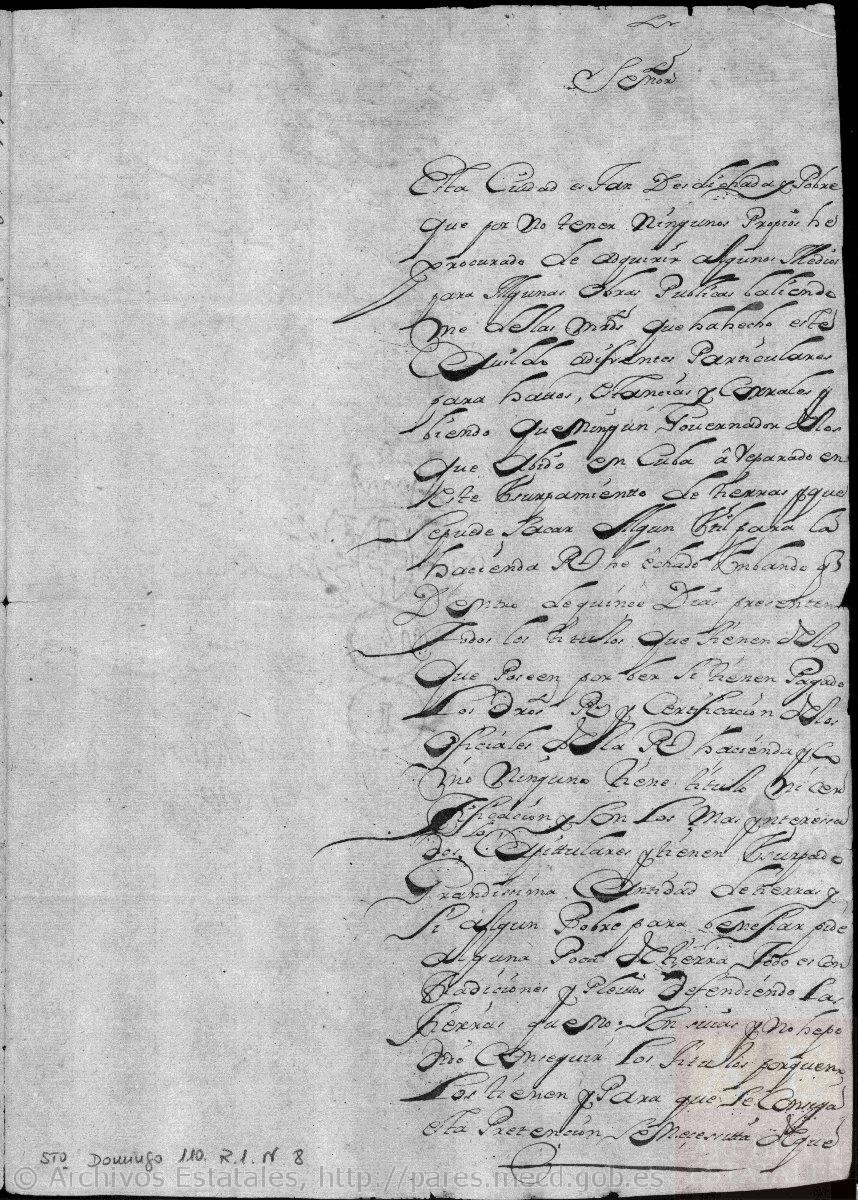 Señor
Esta Ciudad es Tan Desdichada y Pobre
que por no tener Ningunos Propios he
procurado de adquirir algunos Medios
para Algunas obras Publicas baliendo
me de las mrds que ha hecho este
Cauildo a diferentes Particulares
para hattos, estancias y Corrales y
biendo que Ningun Gouernador de los
que abido en Cuba a reparado en
este Vsurpamiento de tierras y que
se puede Sacar Algun Vtil para la
hacienda Rl he echado Vn bando q
Dentro de quince Dias presenten
Todos los titulos que tienen de lo
que Poseen por ber si tienen Pagado
Los dros Rs y Certificacion de los
oficiales de la Rl hacienda y Co
mo Ninguno tiene titulo ni cer
tificacion y son Los Mas ynteressa
dos los Capittulares y tienen Vsurpado
Grandissima Cantidad de tierras y
si algun Pobre para beneficiar pide
alguna Poca de tierra Todo es con
tradiciones y Pleitos Defendiendo Las
tierras que no son suias y no he po
dido Conseguir los titulos porque no
Los tienen y Para que se Consiga
esta Pretencion se Necessitta de que
STO Domingo 110. R.1. N 8
© Archivos Estatales, http://pares.mecd.gob.es